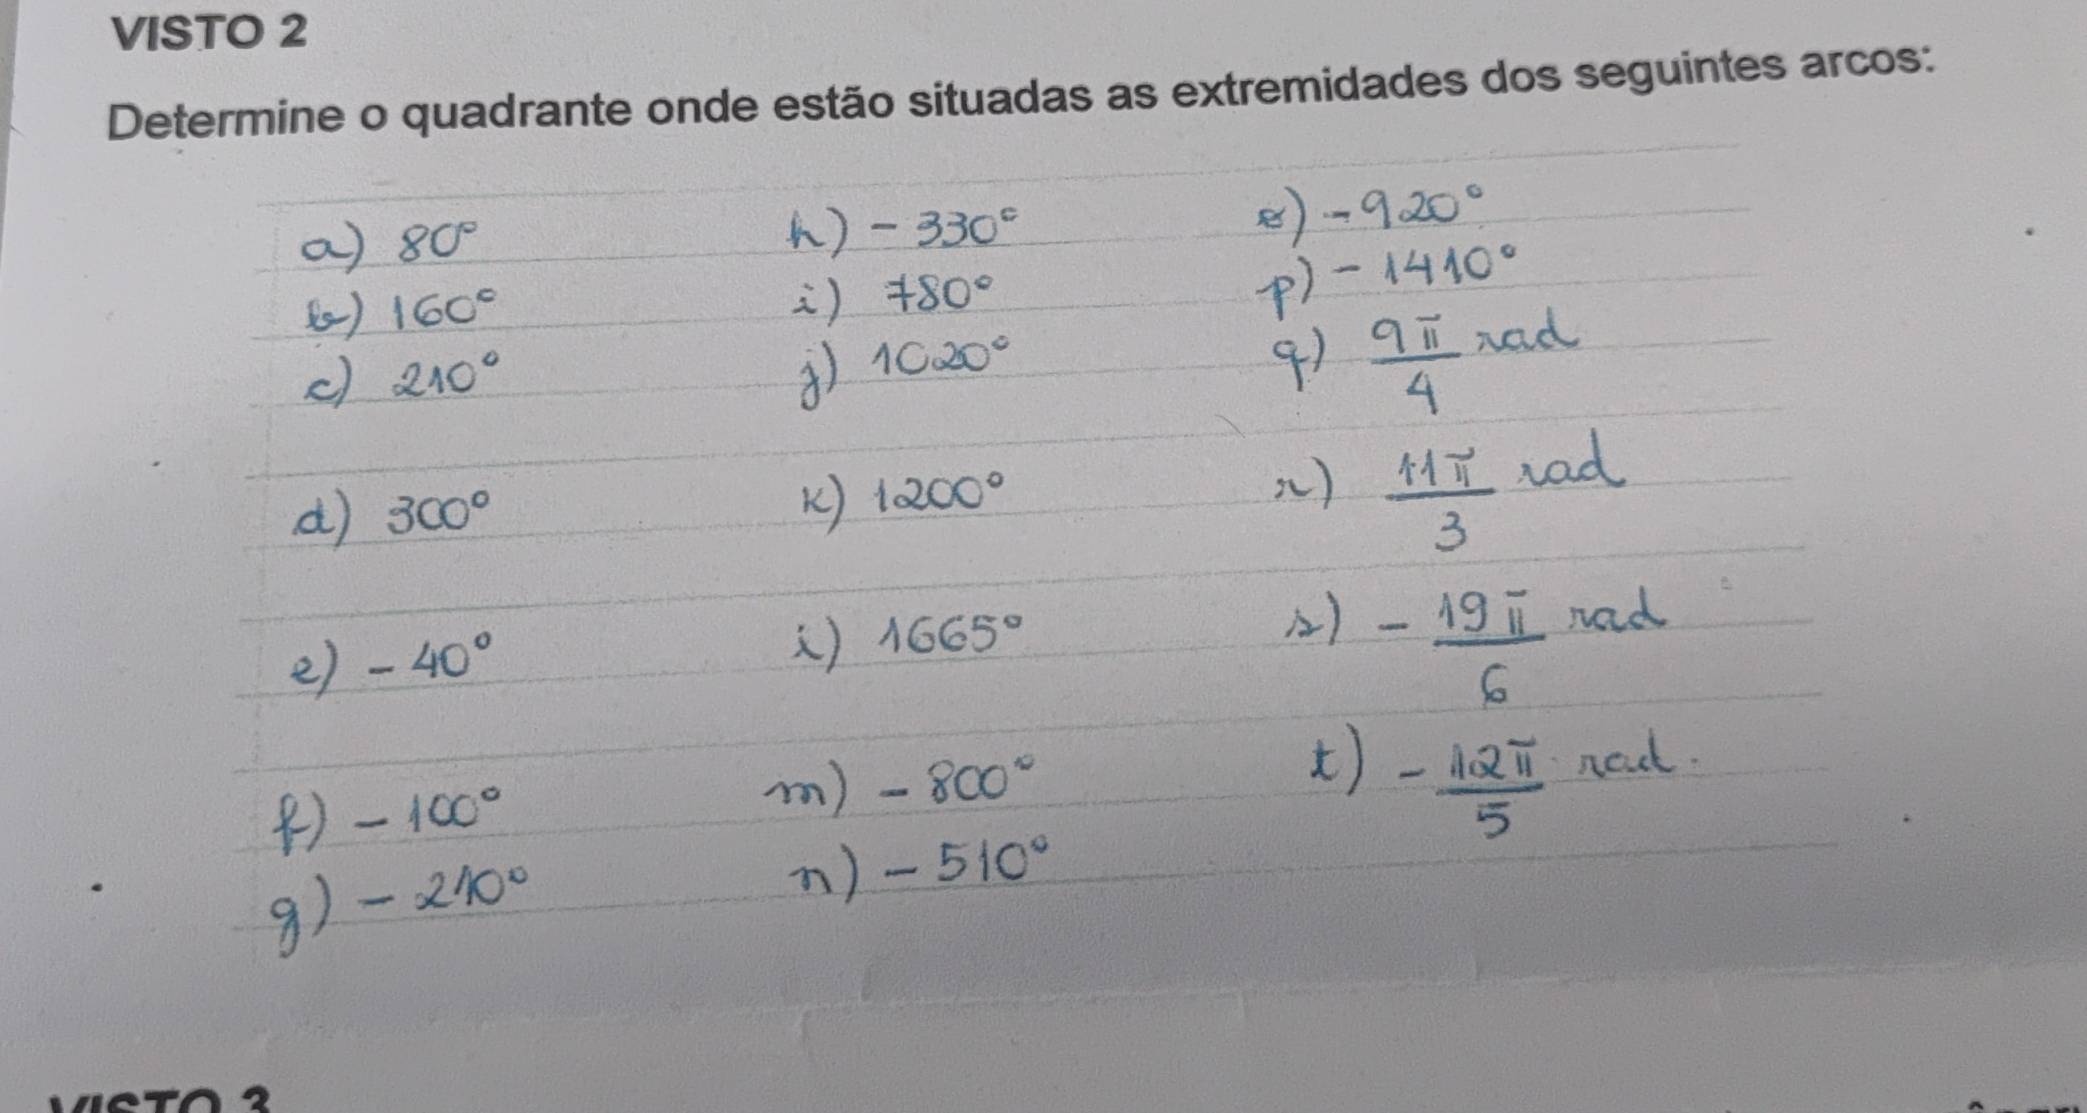 VISTO 2
Determine o quadrante onde estão situadas as extremidades dos seguintes arcos:
a) 80°
b) 160°
c) 210°
d) 300°
e) - 40°
f) - 100°
g) - 210°
h) - 330°
i) 780°
j) 1020°
k) 1200°
i) 1665°
m) - 800°
n) - 510°
o) - 920°
p) - 1410°
q) 9π/4 rad
r) 11π/3 rad
s) - 19π/6 rad
t) - 12π/5 rad.
VISTO 3